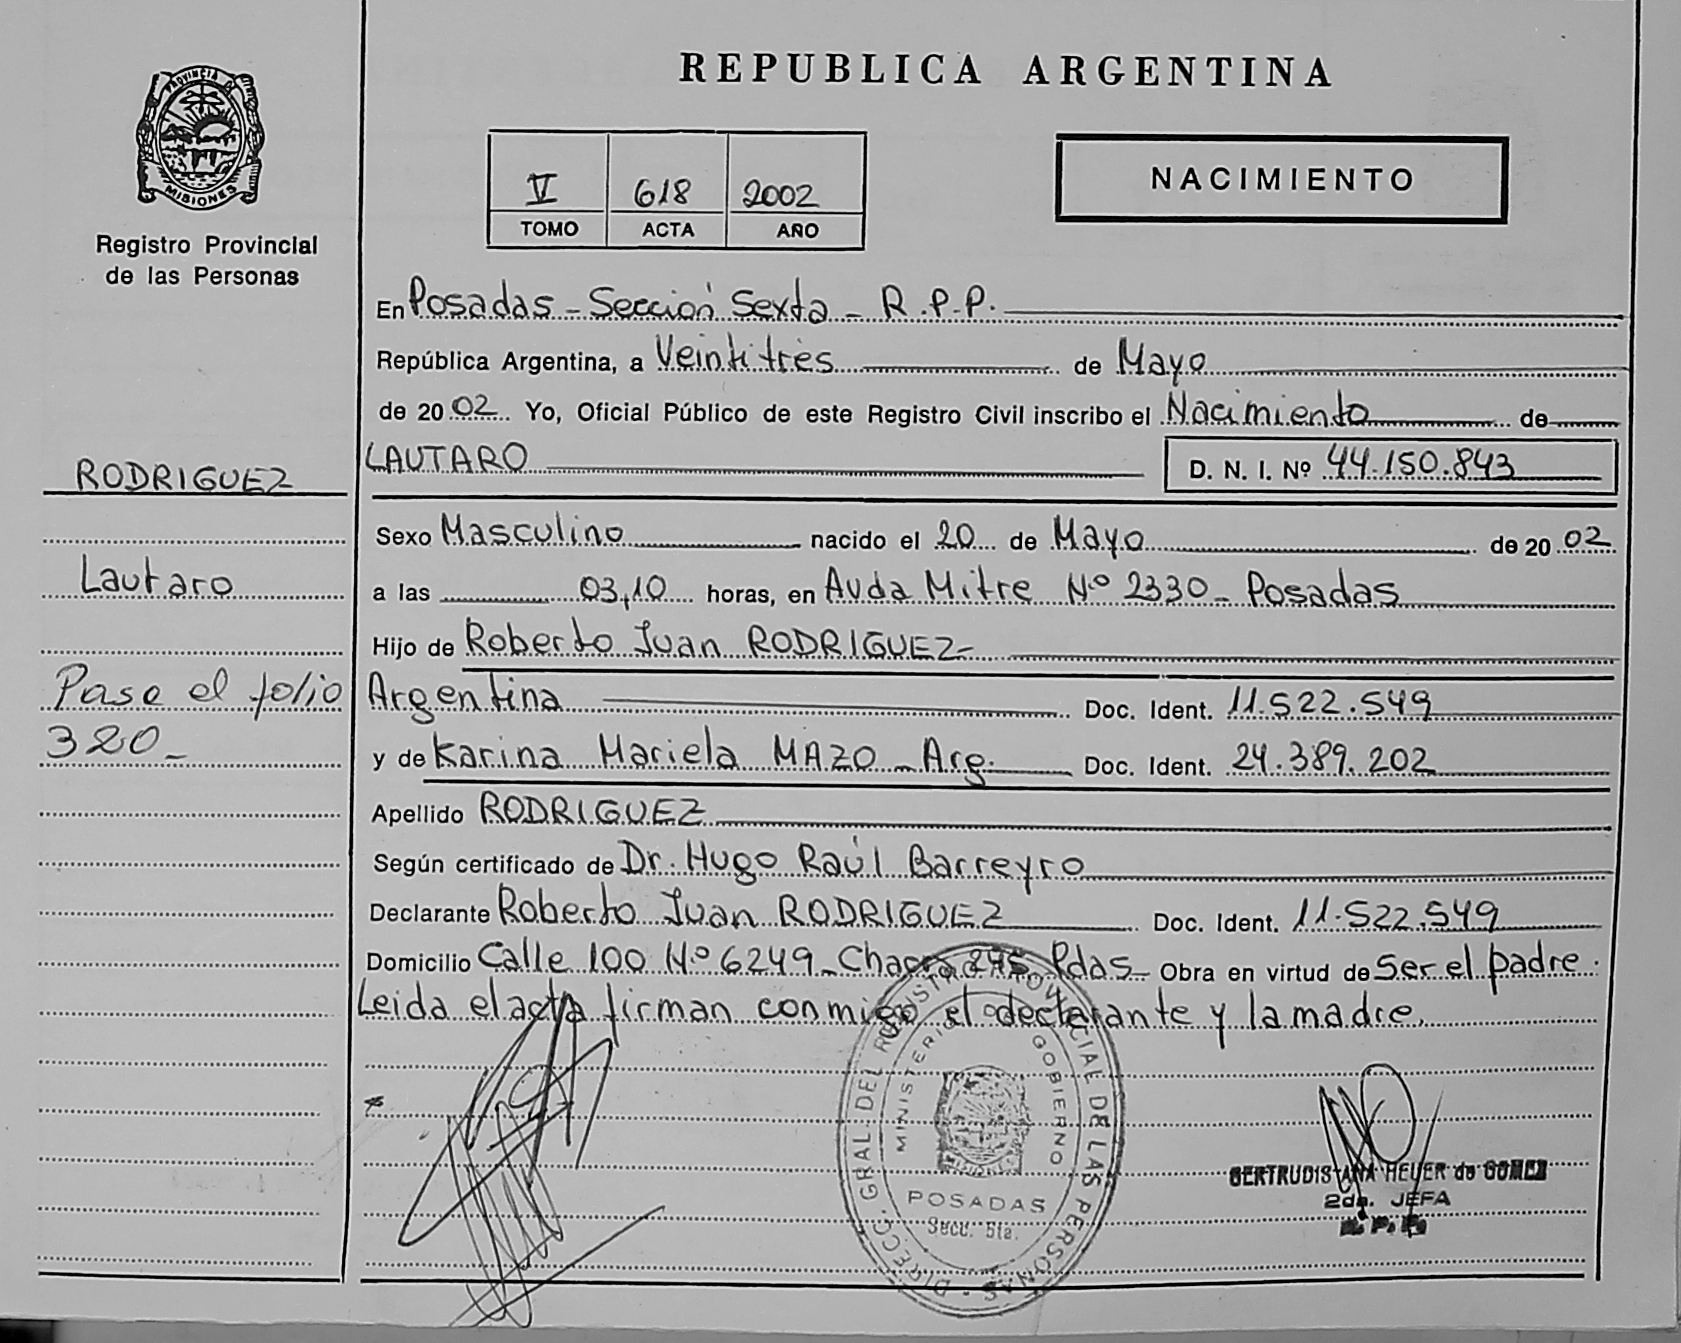 REPUBLICA ARGENTINA
PROVINCIA DE
MISIONES
Registro Provincial
de las Personas
V 618 2002
TOMO ACTA AÑO
NACIMIENTO
En Posadas - Sección Sexta - R.P.P.
República Argentina, a Veintitrés de Mayo
de 2002 Yo, Oficial Público de este Registro Civil inscribo el Nacimiento de
LAUTARO D. N. I. Nº 44.150.843
RODRIGUEZ
Sexo Masculino nacido el 20 de Mayo de 2002
Lautaro
a las 03,10 horas, en Avda Mitre Nº 2330 - Posadas
Hijo de Roberto Juan RODRIGUEZ -
Pase el folio
320 -
Argentina Doc. Ident. 11.522.549
y de Karina Mariela MAZO - Arg. Doc. Ident. 24.389.202
Apellido RODRIGUEZ
Según certificado de Dr. Hugo Raúl Barreyro
Declarante Roberto Juan RODRIGUEZ Doc. Ident. 11.522.549
Domicilio Calle 100 Nº 6249 - Chacra 245 Pdas - Obra en virtud de Ser el padre.
Leida el acta firman conmigo el declarante y la madre.
DIRECC. GRAL. DEL REGISTRO PROVINCIAL DE LAS PERSONAS
MINISTERIO GOBIERNO
POSADAS
Secc.
GERTRUDIS ANA HEUER de
2da. JEFA
R.P.P.